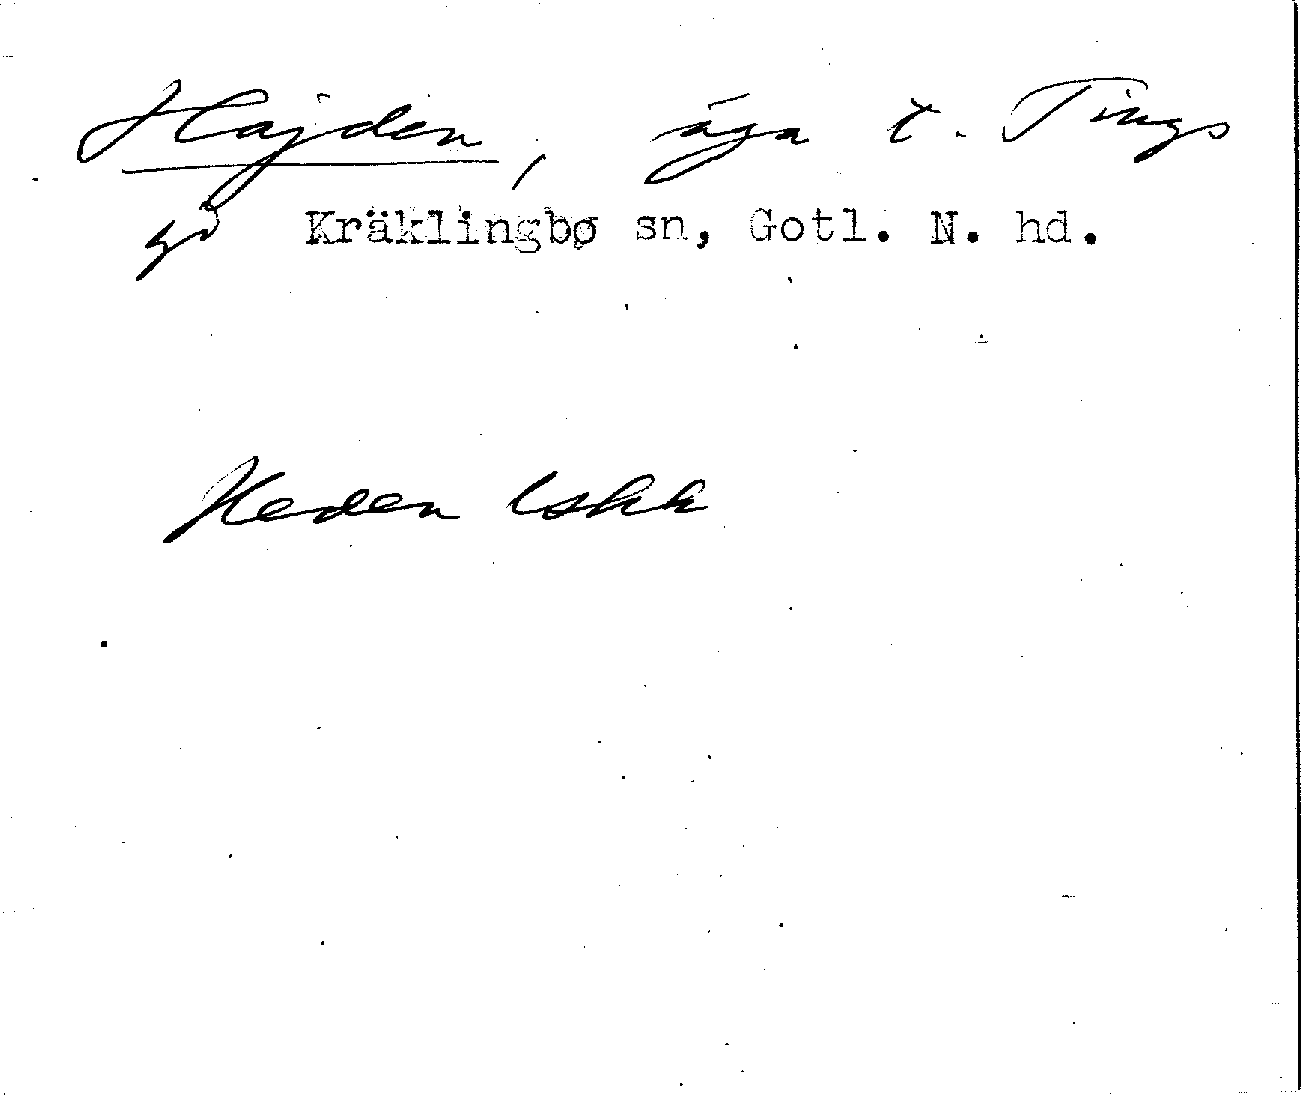 Hajden, äga t. Tings
gd Kräklingbø sn, Gotl. N. hd.
Heden Lskk